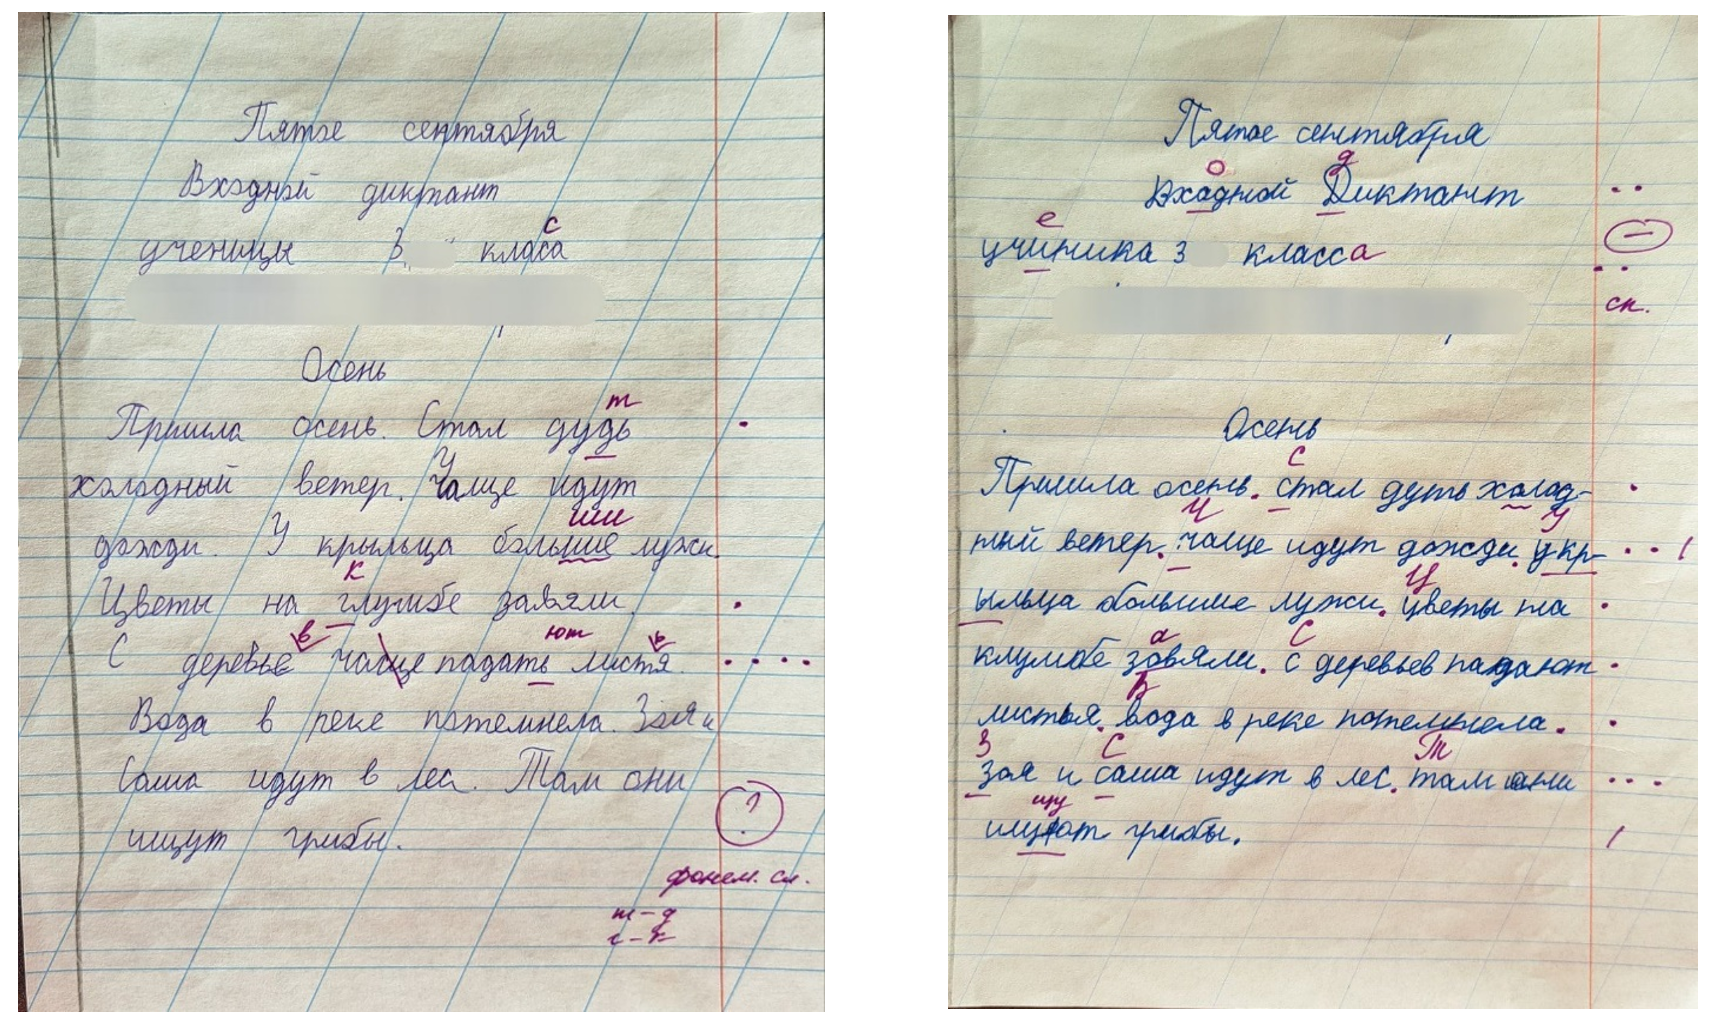 Пятое сентября
Входной диктант
с
ученицы 3 класа
Осень
т
Пришла осень. Стал дудь
Ч
холодный ветер. Чаще идут
шие
дожди. У крыльца большие лужи.
к
Цветы на глумбе завяли.
в ют ь
С деревье чаще падать листя.
Вода в реке потемнела. Зоя и
Саша идут в лес. Там они
ищут грибы.
фонем. сл.
т-д
г-к
Пятое сентября
о д
Вхадной Диктант
е
учиника 3 класса
сп.
Осень
С
Пришла осень. стал дуть холод-
Ч У
ный ветер. чаще идут дожди. укр-
Ц
ыльца большие лужи. цветы на
а С
клумбе зовяли. с деревьев падают
В
листья. вода в реке потемнела.
З С Т
зоя и саша идут в лес. там они
щу
грибы.